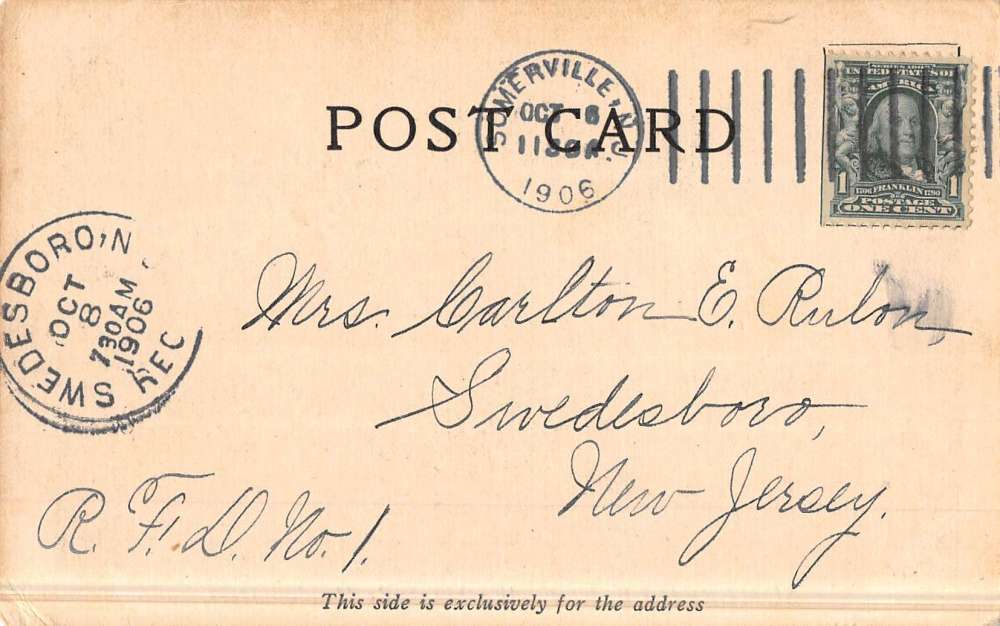 POST CARD
SOMERVILLE, N.J.
OCT 6
1906
SERIES 1902
UNITED STATES OF
AMERICA
1706 FRANKLIN 1790
POSTAGE
1 ONE CENT 1
SWEDESBORO, N
OCT
8
730AM
1906
REC
Mrs. Carlton E. Rulon,
Swedesboro,
New Jersey.
R. F. D. No. 1.
This side is exclusively for the address